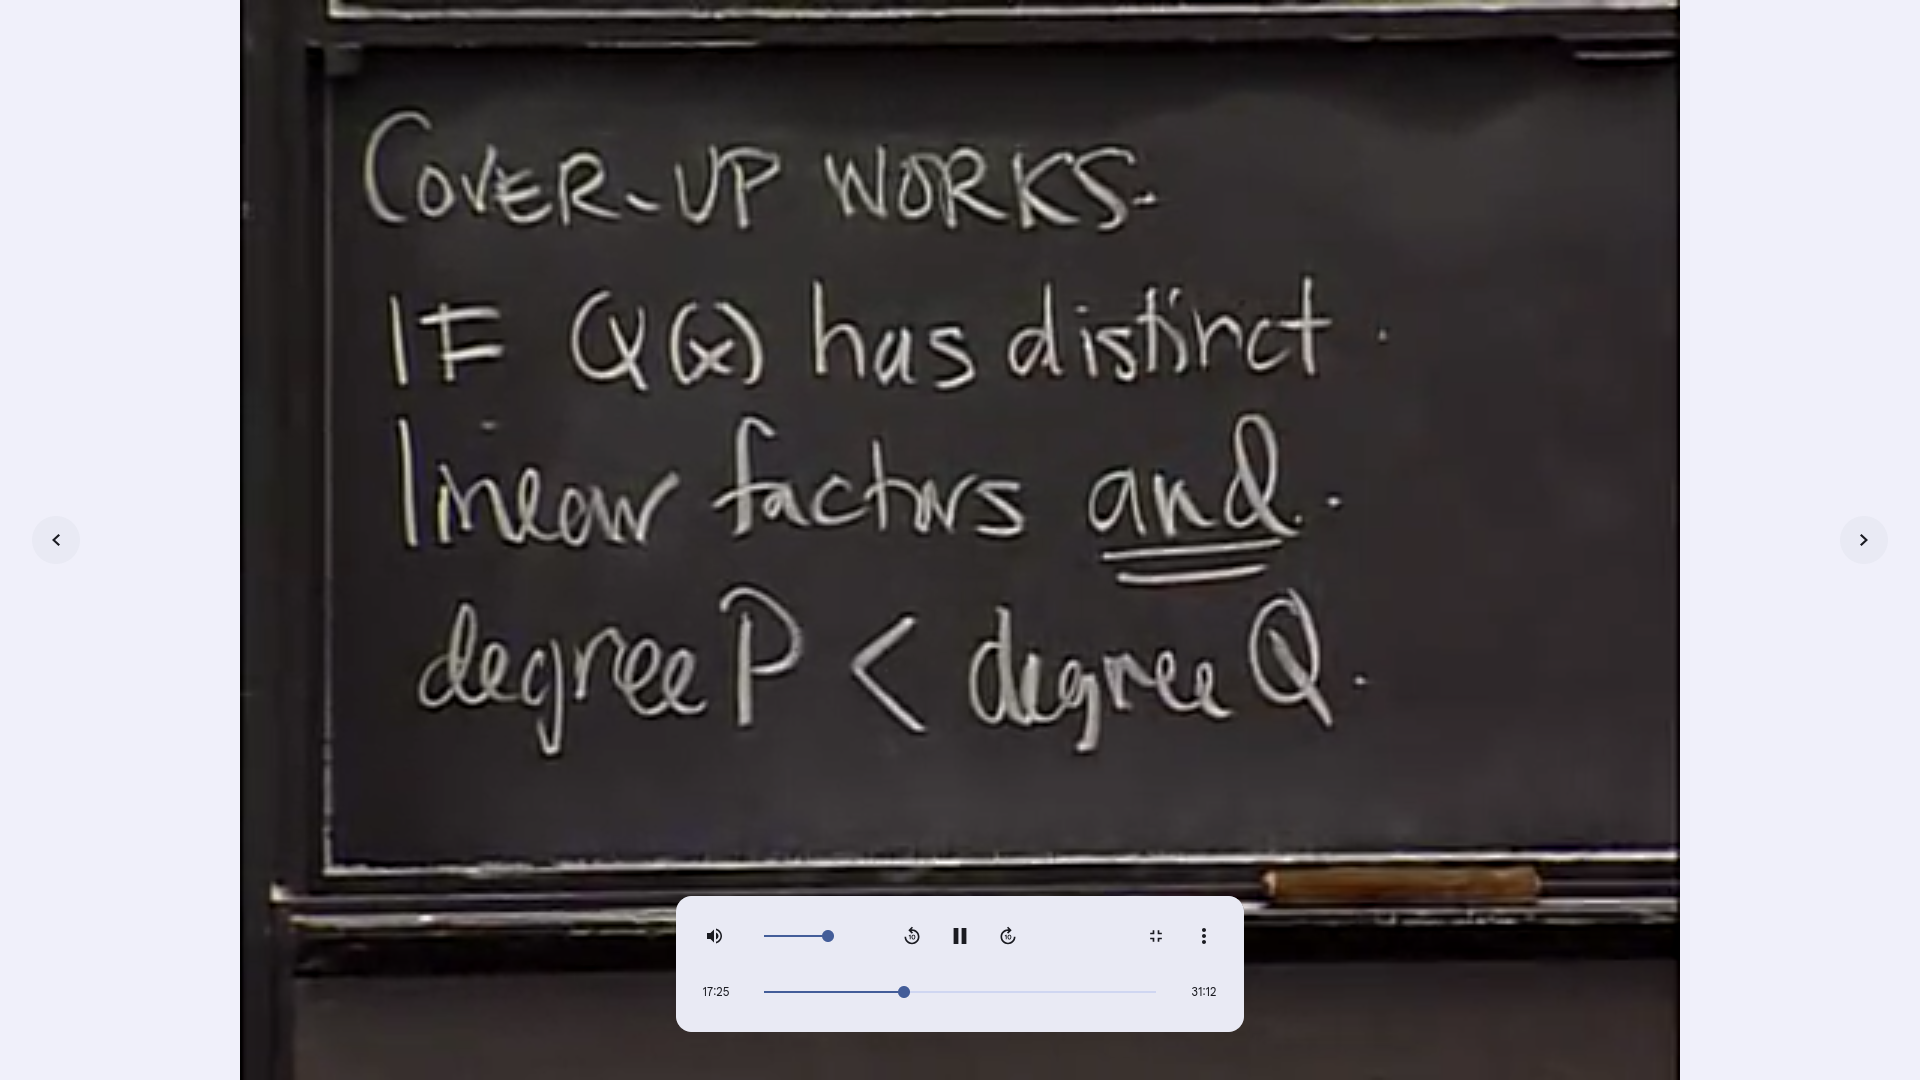 COVER-UP WORKS.
IF Q(x) has distinct
linear factors and
degree P < degree Q.
10
10
17:25
31:12